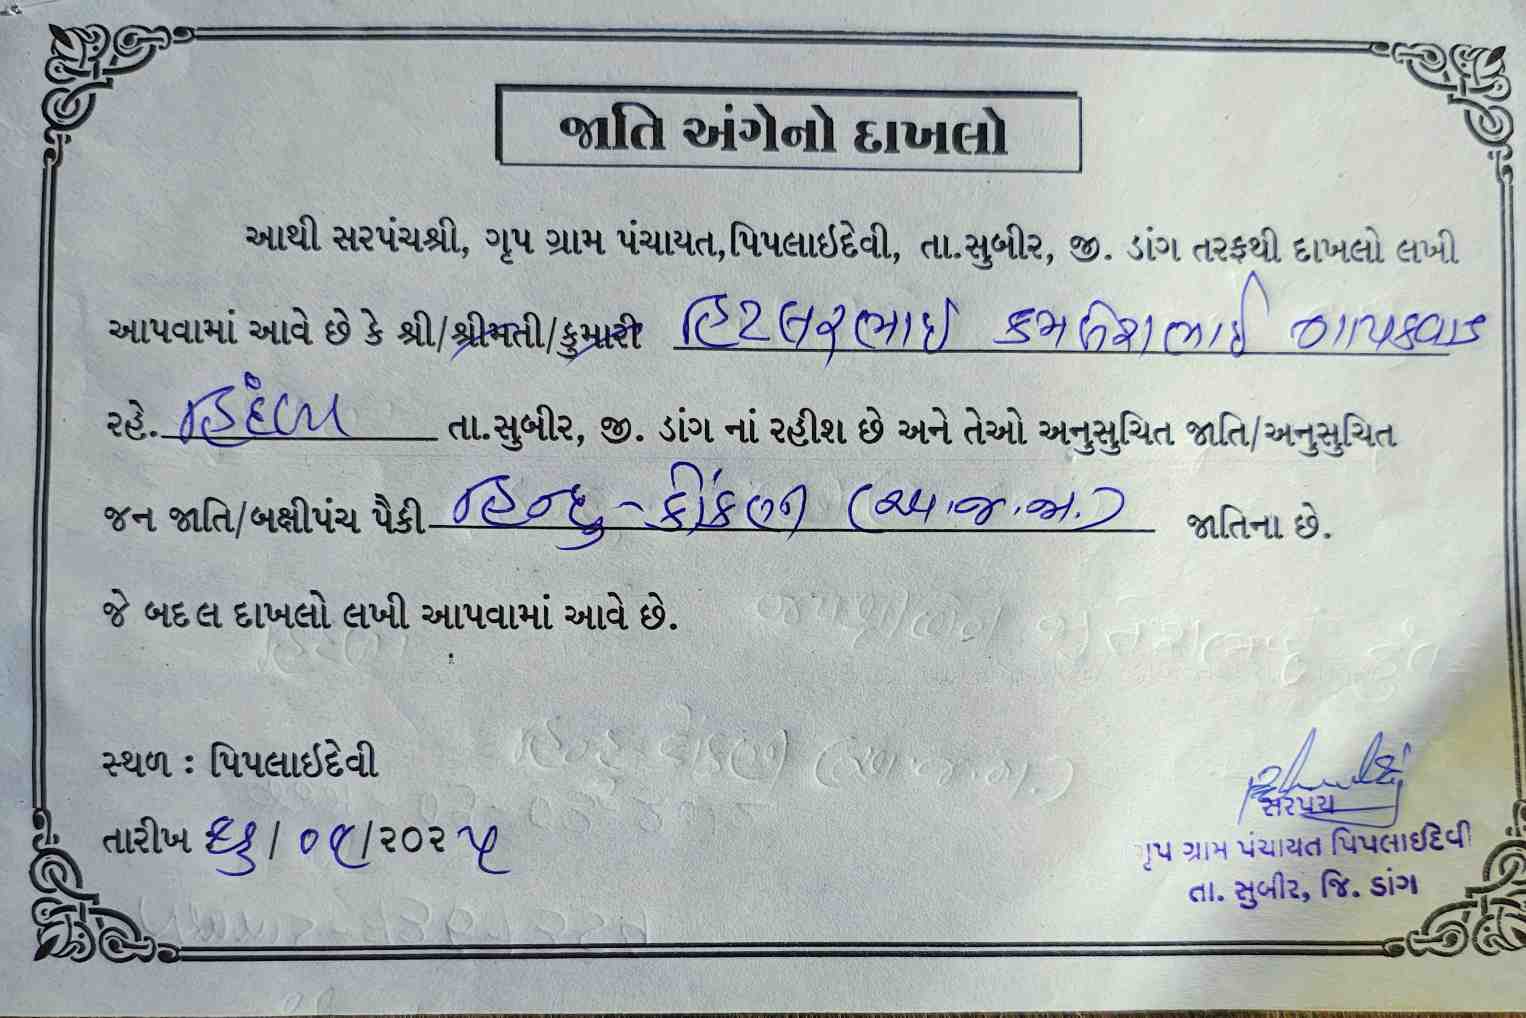 જાતિ અંગેનો દાખલો
આથી સરપંચશ્રી, ગૃપ ગ્રામ પંચાયત,પિપલાઇદેવી, તા.સુબીર, જી. ડાંગ તરફથી દાખલો લખી
આપવામાં આવે છે કે શ્રી/શ્રીમતી/કુમારી હિટલરભાઇ કમલેશભાઇ ગાયકવાડ
રહે. હિંદળા તા.સુબીર, જી. ડાંગ નાં રહીશ છે અને તેઓ અનુસુચિત જાતિ/અનુસુચિત
જન જાતિ/બક્ષીપંચ પૈકી હિન્દુ - કોંકણી (અ.જ.જા.) જાતિના છે.
જે બદલ દાખલો લખી આપવામાં આવે છે.
સ્થળ : પિપલાઇદેવી
તારીખ /૦૯/૨૦૨૫
સરપચ
ગૃપ ગ્રામ પંચાયત પિપલાઇદેવી
તા. સુબીર, જિ. ડાંગ